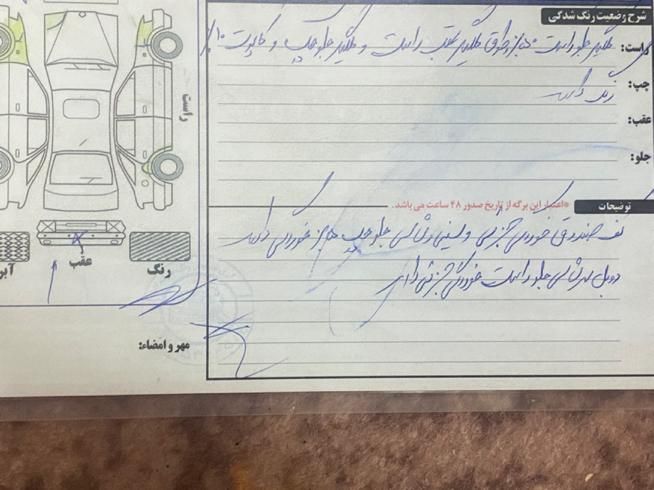 شرح وضعیت رنگ شدگی
راست: گلگیر جلو راست گلگیر عقب راست و گلگیر جلو چپ و کاپوت ۱۰٪
چپ: رنگ دارد
عقب:
جلو:
راست
توضیحات
*اعتبار این برگه از تاریخ صدور ۴۸ ساعت می باشد.
کف صندوق خوردگی جزئی و سینی و شاسی جلو چپ هم خوردگی دارد
دوبل سرشاسی جلو راست خوردگی جزئی دارد
عقب
رنگ
مهر و امضاء: